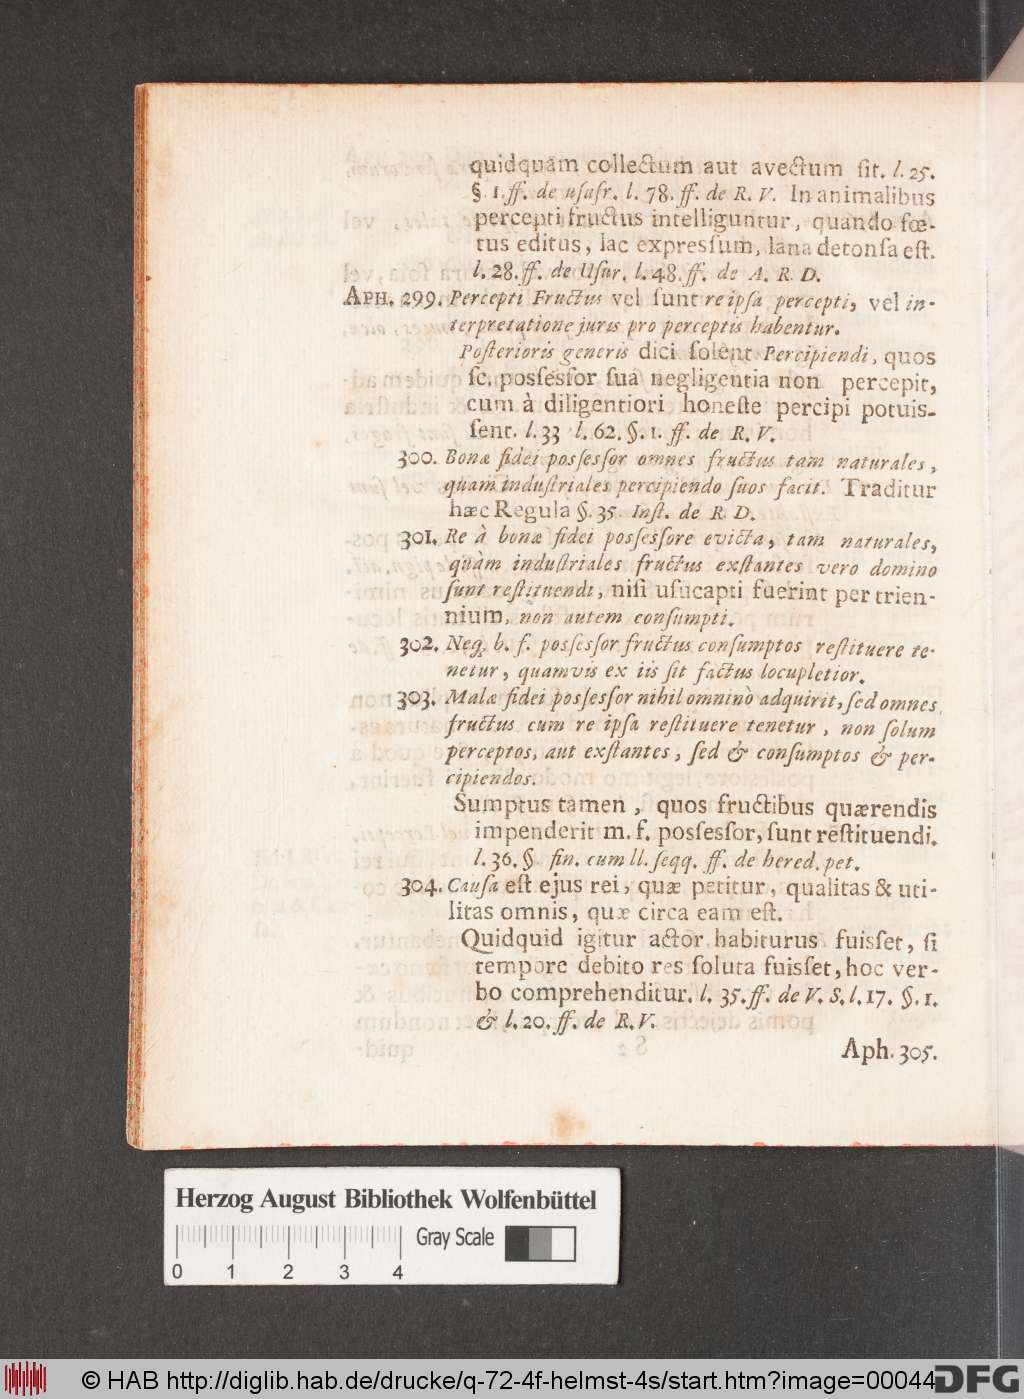 quidquam collectum aut avectum ſit. l. 25.
§. 1. ff. de uſufr. l. 78. ff. de R. V. In animalibus
percepti fructus intelliguntur, quando fœ-
tus editus, lac expreſſum, lana detonſa eſt.
l. 28. ff. de Uſur. l. 48. ff. de A. R. D.
APH. 299. Percepti Fructus vel ſunt re ipſa percepti, vel in-
terpretatione juris pro perceptis habentur.
Poſterioris generis dici ſolent Percipiendi, quos
ſc. poſſeſſor ſua negligentia non percepit,
cum à diligentiori honeſte percipi potuiſ-
ſent. l. 33 l. 62. §. 1. ff. de R. V.
300. Bonæ fidei poſſeſſor omnes fructus tam naturales,
quam induſtriales percipiendo ſuos facit. Traditur
hæc Regula §. 35. Inſt. de R. D.
301. Re à bonæ fidei poſſeſſore evicta, tam naturales,
quàm induſtriales fructus exſtantes vero domino
ſunt reſtituendi, niſi uſucapti fuerint per trien-
nium, non autem conſumpti.
302. Neq; b. f. poſſeſſor fructus conſumptos reſtituere te-
netur, quamvis ex iis ſit factus locupletior.
303. Malæ fidei poſſeſſor nihil omninò adquirit, ſed omnes
fructus cum re ipſa reſtituere tenetur, non ſolum
perceptos, aut exſtantes, ſed & conſumptos & per-
cipiendos.
Sumptus tamen, quos fructibus quærendis
impenderit m. f. poſſeſſor, ſunt reſtituendi.
l. 36. § fin. cum ll. ſeqq. ff. de hered. pet.
304. Cauſa eſt ejus rei, quæ petitur, qualitas & uti-
litas omnis, quæ circa eam eſt.
Quidquid igitur actor habiturus fuiſſet, ſi
tempore debito res ſoluta fuiſſet, hoc ver-
bo comprehenditur. l. 35. ff. de V. S. l. 17. §. 1.
& l. 20. ff. de R. V.
Aph. 305.
Herzog August Bibliothek Wolfenbüttel
Gray Scale
0 1 2 3 4
© HAB http://diglib.hab.de/drucke/q-72-4f-helmst-4s/start.htm?image=00044
DFG